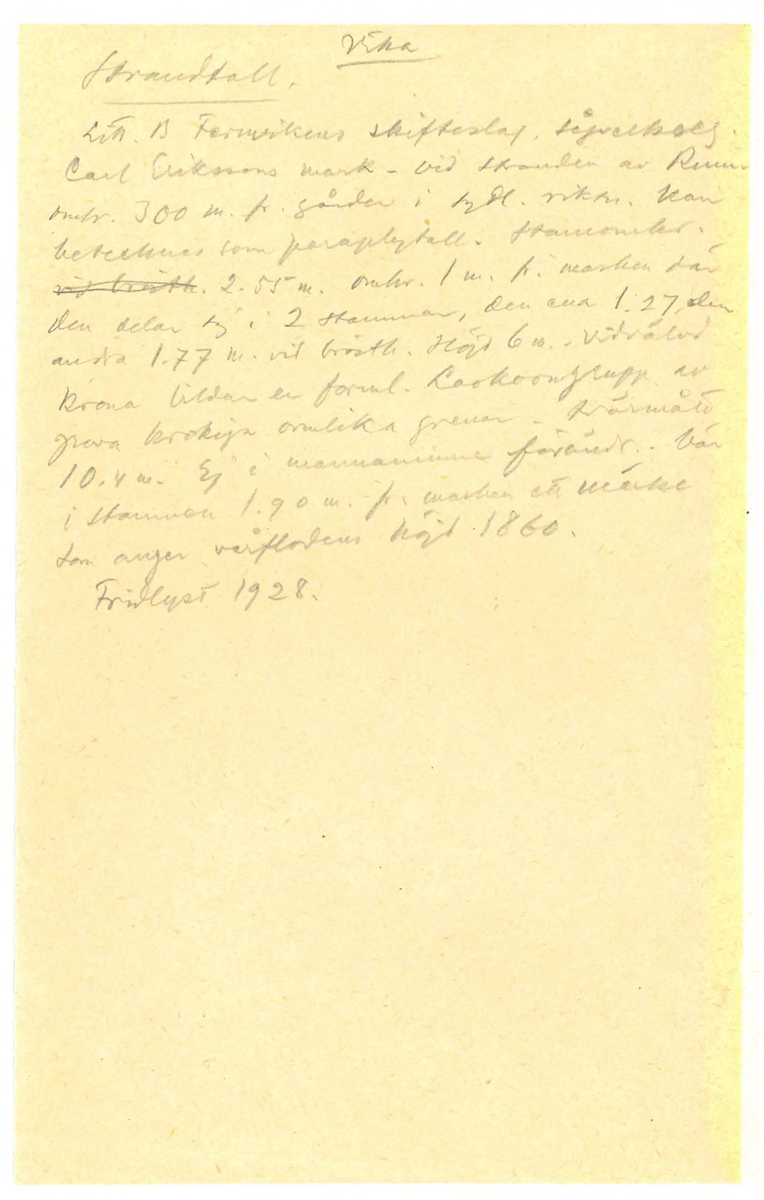 Vika
Strandtall.
Litt. B Fermikens skifteslag,
Carl Erikssons mark - vid stranden av Runn
omkr. 300 m. fr. gården i sydl. riktn. Kan
betecknas som paraplytall. Stamomkr.
vid brösth. 2.55 m. omkr. 1 m. fr. marken där
den delar sig i 2 stammar, den ena 1.27, den
andra 1.77 m. vid brösth. Höjd 6 m. - Vidrälvd
krona bildar en forml. Laokoongrupp av
grova krokiga ormlika grenar. Tvärmått
10.4 m. Ej i mannaminne förändr. Bär
i stammen 1.90 m. fr. marken ett märke
som anger vårflodens höjd 1860.
Fridlyst 1928.